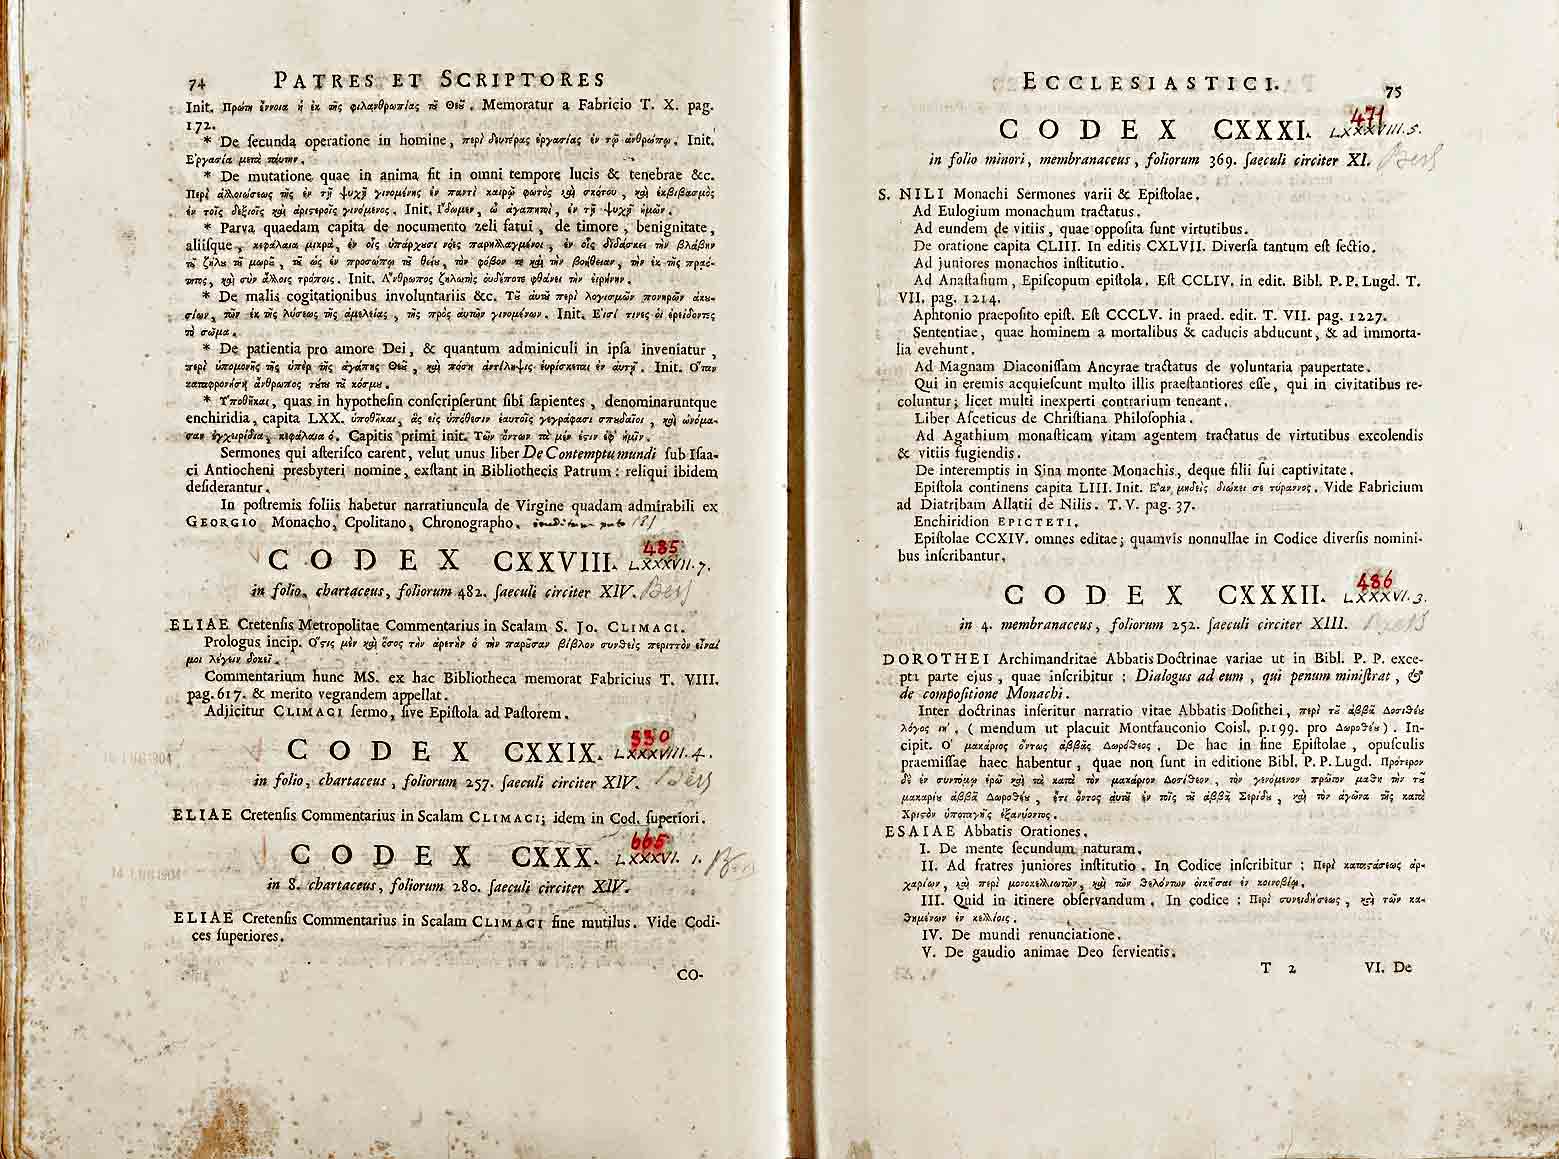 74 PATRES ET SCRIPTORES
Init. Πρώτη ἔννοια ἡ ἐκ τῆς φιλανθρωπίας τῦ Θεῦ. Memoratur a Fabricio T. X. pag.
172.
* De ſecunda operatione in homine, περὶ δευτέρας ἐργασίας ἐν τῷ ἀνθρώπῳ. Init.
Ε'ργασία μετὰ ταύτην.
* De mutatione quae in anima fit in omni tempore lucis & tenebrae &c.
Περὶ ἀλλοιώσεως τῆς ἐν τῇ ψυχῇ γινομένης ἐν παντὶ καιρῷ φωτὸς καὶ σκότου, καὶ ἐκβιβασμὸς
ἐν τοῖς δεξιοῖς καὶ ἀριστεροῖς γινόμενος. Init. Ι"δωμεν, ὦ ἀγαπητοὶ, ἐν τῇ ψυχῇ ἡμῶν.
* Parva quaedam capita de nocumento zeli fatui, de timore, benignitate,
aliiſque, κεφάλαια μικρὰ, ἐν οἷς ὑπάρχυσι νόες παρηλλαγμένοι, ἐν οἷς διδάσκει τὴν βλάβην
τῦ ζήλυ τῦ μωρῦ, τῦ ὡς ἐν προσώπῳ τῦ θείυ, τὸν φόβον τε καὶ τὴν βοήθειαν, τὴν ἐκ τῆς πραό-
τητος, καὶ σὺν ἄλλοις τρόποις. Init. Α"νθρωπος ζηλωτὴς ὀυδέποτε φθάνει τὴν εἰρήνην.
* De malis cogitationibus involuntariis &c. Τῦ ἀυτῦ περὶ λογισμῶν πονηρῶν ἀκυ-
σίων, τῶν ἐκ τῆς λύσεως τῆς ἀμελείας, τῆς πρὸς ἀυτῶν γινομένων. Init. Ε'ισί τινες ὁι ἐρείδοντες
τὸ σῶμα.
* De patientia pro amore Dei, & quantum adminiculi in ipſa inveniatur,
περὶ ὑπομονῆς τῆς ὑπὲρ τῆς ἀγάπης Θεῦ, καὶ πόση ἀντίληψις ἑυρίσκεται ἐν ἀυτῇ. Init. Ο"ταν
καταφρονήσῃ ἄνθρωπος τύτυ τῦ κόσμυ.
* Υ'ποθῆκαι, quas in hypotheſin conſcripſerunt ſibi ſapientes, denominaruntque
enchiridia, capita LXX. ὑποθῆκαι, ἃς εἰς ὑπόθεσιν ἑαυτοῖς γεγράφασι σπυδαῖοι, καὶ ὠνόμα-
σαν ἐγχειρίδια, κεφάλαια ό. Capitis primi init. Τῶν ὄντων τὰ μέν ἐστιν ἐφ' ἡμῖν.
Sermones qui aſteriſco carent, velut unus liber De Contemptu mundi ſub Iſaa-
ci Antiocheni presbyteri nomine, exſtant in Bibliothecis Patrum: reliqui ibidem
deſiderantur.
In poſtremis foliis habetur narratiuncula de Virgine quadam admirabili ex
GEORGIO Monacho, Cpolitano, Chronographo.
CODEX CXXVIII. 485 LXXXVII.7.
in folio, chartaceus, foliorum 482. ſaeculi circiter XIV. Beſſ
ELIAE Cretenſis Metropolitae Commentarius in Scalam S. Jo. CLIMACI.
Prologus incip. Ο"στις μὲν καὶ ὅσος τὴν ἀρετὴν ὁ τὴν παρῦσαν βίβλον συνθεὶς περιττὸν εἶναί
μοι λέγειν δοκεῖ.
Commentarium hunc MS. ex hac Bibliotheca memorat Fabricius T. VIII.
pag. 617. & merito vegrandem appellat.
Adjicitur CLIMACI ſermo, ſive Epiſtola ad Paſtorem.
CODEX CXXIX. 530 LXXXVIII.4.
in folio, chartaceus, foliorum 257. ſaeculi circiter XIV. Beſſ
ELIAE Cretenſis Commentarius in Scalam CLIMACI; idem in Cod. ſuperiori.
CODEX CXXX. 665 LXXXVI. 1.
in 8. chartaceus, foliorum 280. ſaeculi circiter XIV.
ELIAE Cretenſis Commentarius in Scalam CLIMACI fine mutilus. Vide Codi-
ces ſuperiores.
CO-
ECCLESIASTICI. 75
CODEX CXXXI. 471 LXXXVIII.5.
in folio minori, membranaceus, foliorum 369. ſaeculi circiter XI. Beſſ
S. NILI Monachi Sermones varii & Epiſtolae.
Ad Eulogium monachum tractatus.
Ad eundem de vitiis, quae oppoſita ſunt virtutibus.
De oratione capita CLIII. In editis CXLVII. Diverſa tantum eſt ſectio.
Ad juniores monachos inſtitutio.
Ad Anaſtaſium, Epiſcopum epiſtola. Eſt CCLIV. in edit. Bibl. P. P. Lugd. T.
VII. pag. 1214.
Aphtonio praepoſito epiſt. Eſt CCCLV. in praed. edit. T. VII. pag. 1227.
Sententiae, quae hominem a mortalibus & caducis abducunt, & ad immorta-
lia evehunt.
Ad Magnam Diaconiſſam Ancyrae tractatus de voluntaria paupertate.
Qui in eremis acquieſcunt multo illis praeſtantiores eſſe, qui in civitatibus re-
coluntur; licet multi inexperti contrarium teneant.
Liber Aſceticus de Chriſtiana Philoſophia.
Ad Agathium monaſticam vitam agentem tractatus de virtutibus excolendis
& vitiis fugiendis.
De interemptis in Sina monte Monachis, deque filii ſui captivitate.
Epiſtola continens capita LIII. Init. Ε'αν μηδεὶς διώκει σε τύραννος. Vide Fabricium
ad Diatribam Allatii de Nilis. T. V. pag. 37.
Enchiridion EPICTETI.
Epiſtolae CCXIV. omnes editae; quamvis nonnullae in Codice diverſis nomini-
bus inſcribantur.
CODEX CXXXII. 486 LXXXVI.3.
in 4. membranaceus, foliorum 252. ſaeculi circiter XIII.
DOROTHEI Archimandritae Abbatis Doctrinae variae ut in Bibl. P. P. exce-
pta parte ejus, quae inſcribitur: Dialogus ad eum, qui penum miniſtrat, &
de compoſitione Monachi.
Inter doctrinas inſeritur narratio vitae Abbatis Doſithei, περὶ τῦ ἀββᾶ Δοσιθέυ
λόγος ιη'. (mendum ut placuit Montfauconio Coisl. p. 199. pro Δωροθέυ). In-
cipit. Ο' μακάριος ὄντως ἀββᾶς Δωρόθεος. De hac in fine Epiſtolae, opuſculis
praemiſſae haec habentur, quae non ſunt in editione Bibl. P. P. Lugd. Πρότερον
δὲ ἐν συντόμῳ ἐρῶ καὶ τὰ κατὰ τὸν μακάριον Δοσίθεον, τὸν γενόμενον πρῶτον μαθη τὴν τῦ
μακαρίυ ἀββᾶ Δωροθέυ, ἔτι ὄντος ἀυτῦ ἐν τοῖς τῦ ἀββᾶ Σερίδυ, καὶ τὸν ἀγῶνα τῆς κατὰ
Χριστὸν ὑποταγῆς ἐξανύοντος.
ESAIAE Abbatis Orationes.
I. De mente ſecundum naturam.
II. Ad fratres juniores inſtitutio. In Codice inſcribitur: Περὶ καταστάσεως ἀρ-
χαρίων, καὶ περὶ μονοκελλιωτῶν, καὶ τῶν θελόντων ὀικῆσαι ἐν κοινοβίῳ.
III. Quid in itinere obſervandum. In codice: Περὶ συνειδήσεως, καὶ τῶν κα-
θημένων ἐν κελλίοις.
IV. De mundi renunciatione.
V. De gaudio animae Deo ſervientis.
T 2 VI. De